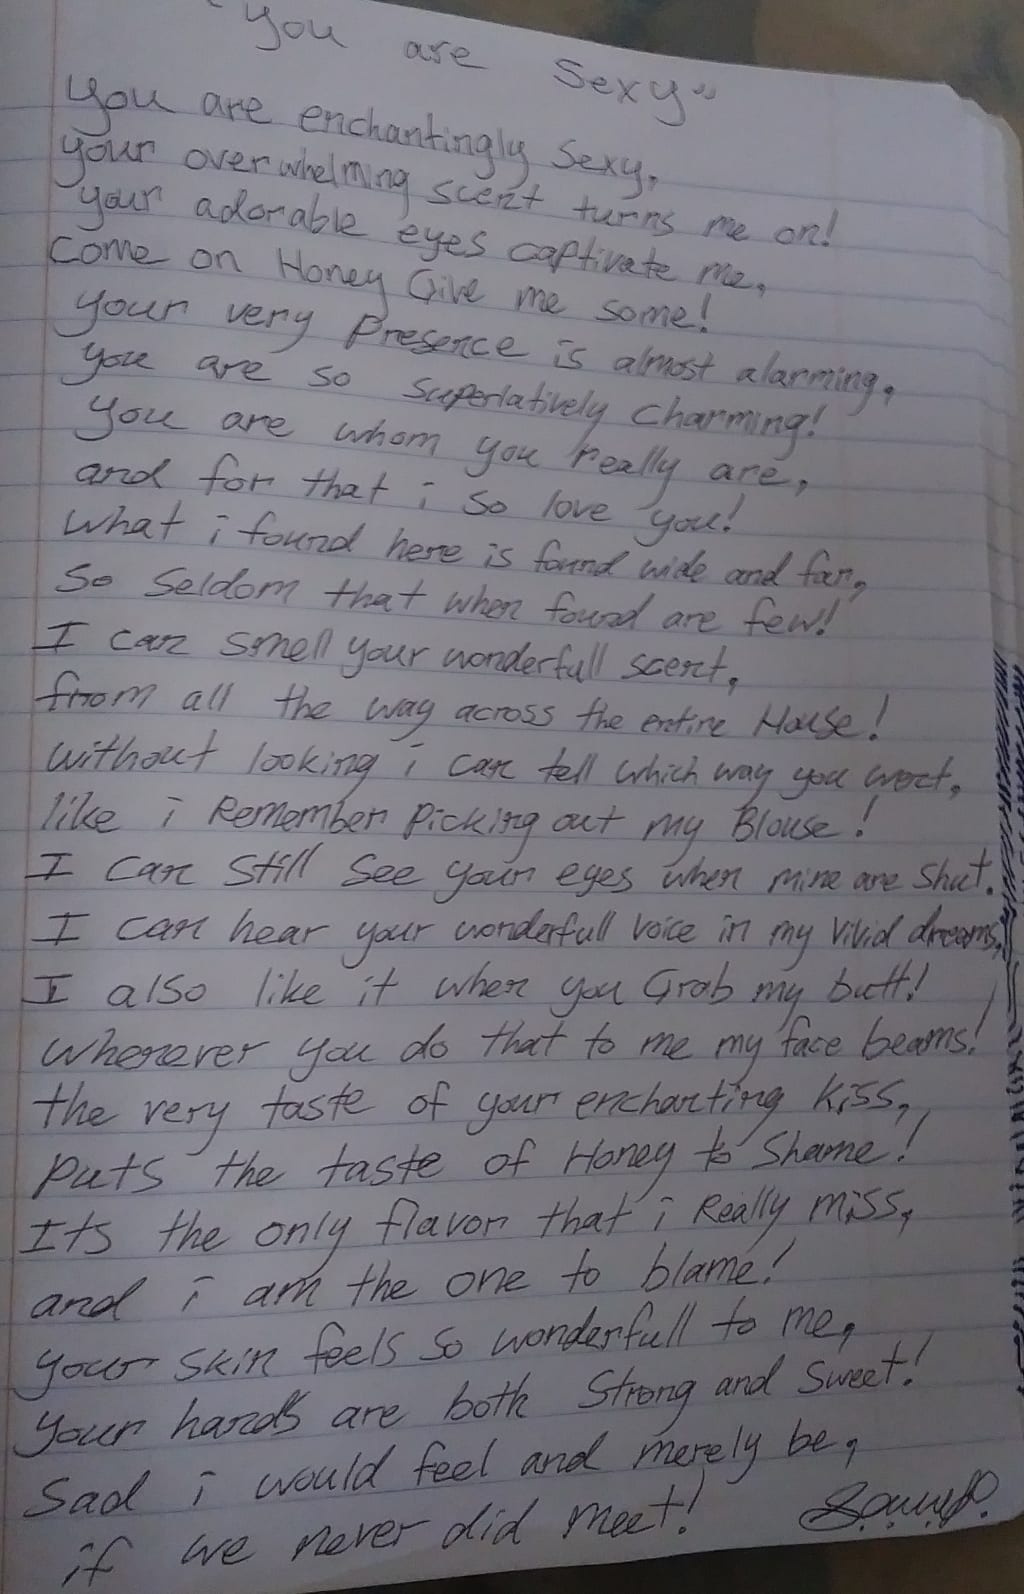 "You are Sexy"
You are enchantingly Sexy,
your overwhelming scent turns me on!
your adorable eyes captivate me,
Come on Honey Give me some!
your very Presence is almost alarming,
you are so superlatively charming!
you are whom you really are,
and for that i so love you!
what i found here is found wide and far,
So Seldom that when found are few!
I can smell your wonderfull scent,
from all the way across the entire House!
without looking i can tell which way you went,
like i Remember Picking out my Blouse!
I can Still See your eyes when mine are Shut.
I can hear your wonderfull voice in my vivid dreams,
I also like it when you Grab my butt!
whenever you do that to me my face beams!
the very taste of your enchanting kiss,
Puts the taste of Honey to Shame!
Its the only flavor that i Really miss,
and i am the one to blame!
your skin feels so wonderfull to me,
your hands are both Strong and Sweet!
Sad i would feel and merely be,
if we never did meet!